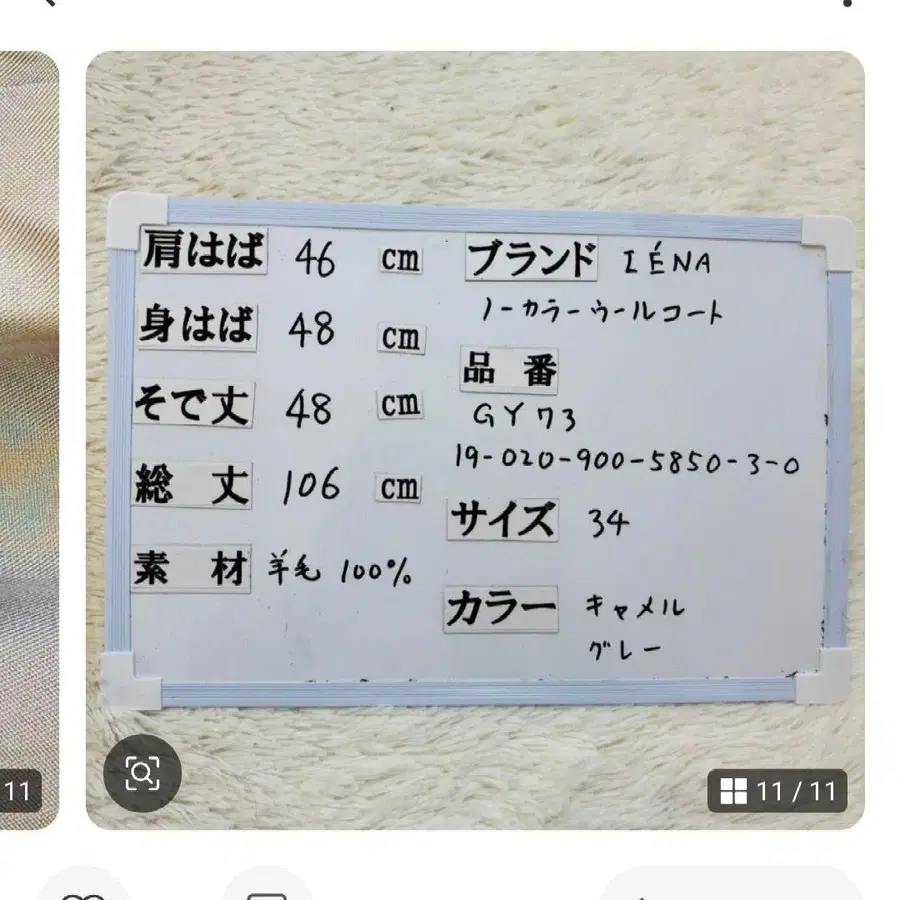 肩はば 46 cm
身はば 48 cm
そで丈 48 cm
総丈 106 cm
素材 羊毛 100%
ブランド IÉNA
ノーカラーウールコート
品番
GY73
19-020-900-5850-3-0
サイズ 34
カラー キャメル
グレー
11
11 / 11